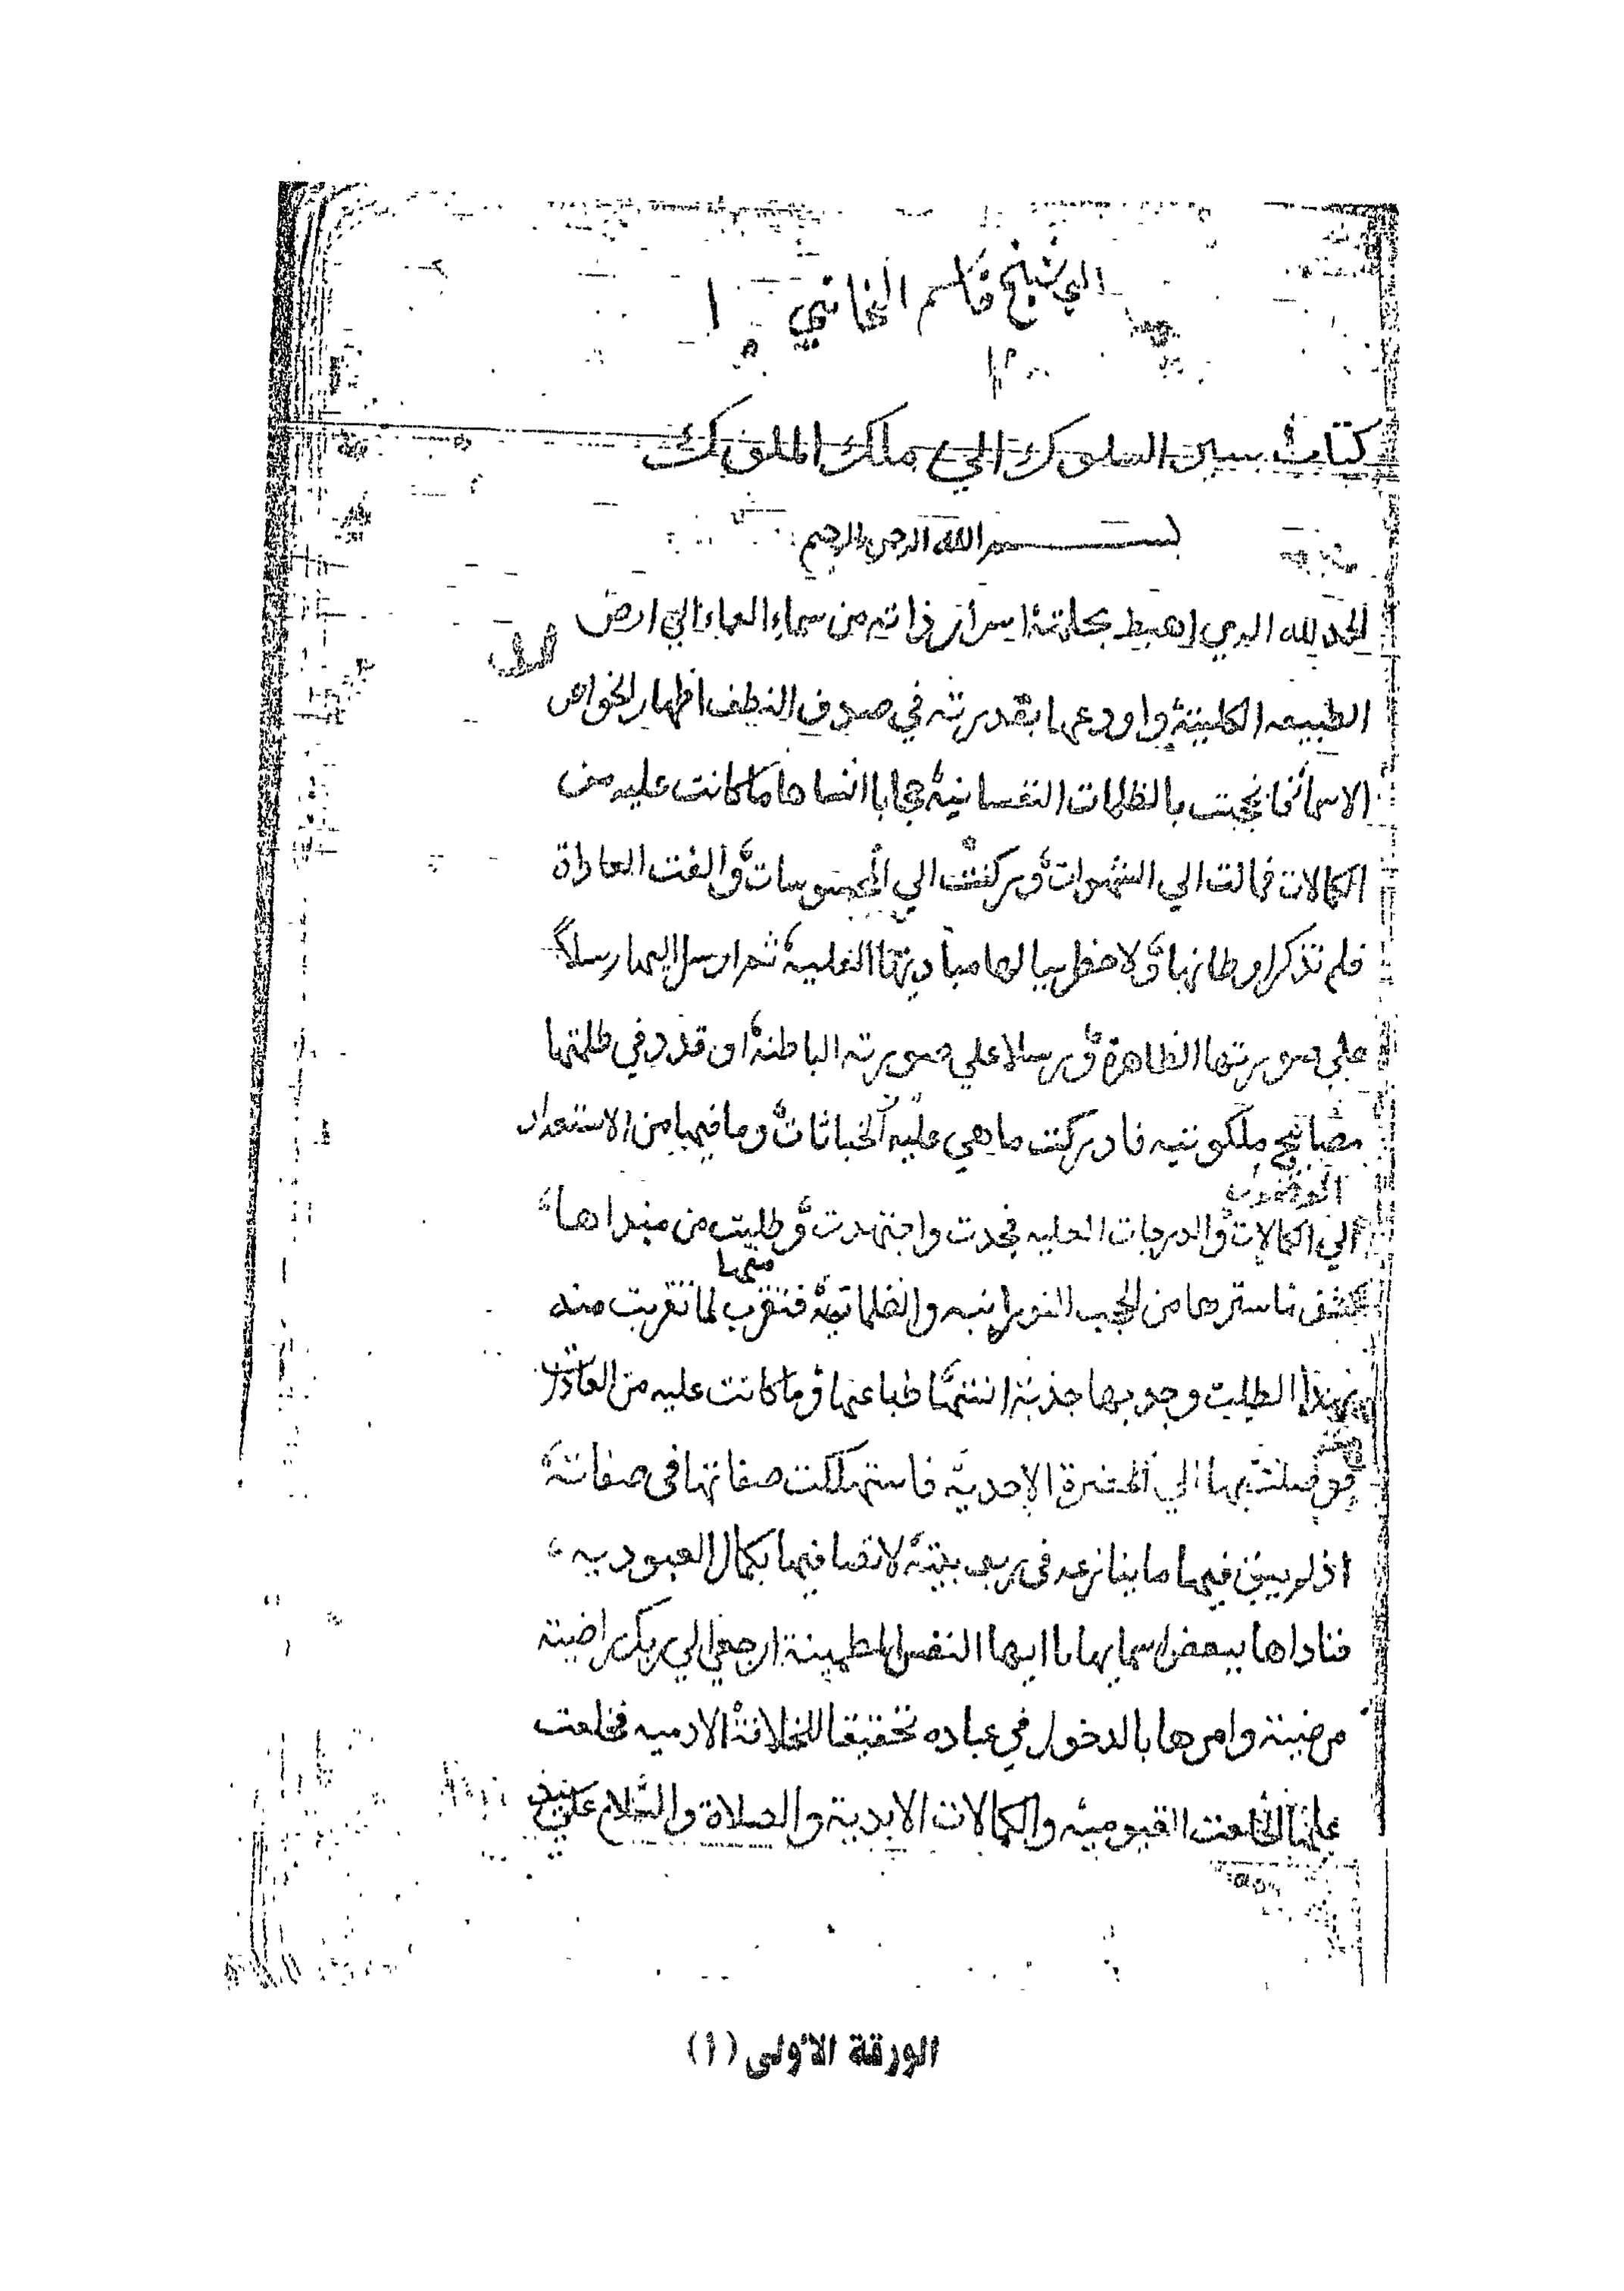 الي شيخ قاسم الخاني
كتاب سير السلوك الي ملك الملوك
بسم الله الرحمن الرحيم
الحمد لله الدي اهبط بحكمته اسرار ذاته من سماء العماء الي ارض
الطبيعه الكلية واودعها بقدرته في صدف النطف اظهار الخواص
الاسمائ فانحجبت بالظلمات النفسانية حجابا انساها ما كانت عليه من
الكمالات فمالت الي الشهوات وركنت الي المحسوسات والفت العاداة
فلم تذكر اوطانها ولا خطر ببالها مباديها العلية ثم ارسل اليها رسلا
علي صورتها الظاهرة ورسلا علي صورته الباطنة اوقدد في ظلمتها
مصابيح ملكوتيه فادركت ما هي عليه الخباثات وما فيها من الاستعداد
الي الكمالات والدرجات العليه فجدت واجتهدت وطلبت من مبداها
كشف ماسترها من الحجب النورانيه والظلمانية فتقرب لما تقربت منه
منها
بهدا الطلب وجدبها جذبة انستها طباعها وما كانت عليه من العادات
فوصلت بها الي الحضرة الاحديه فاستهلكت صفاتها فى صفاته
اذ لم يبق فيها ما ينازعه فى ربوبيته لاتصافها بكمال العبوديه
فناداها ببعض اسمايها ياايها النفس المطمينة ارجعي الي ربك راضية
مرضية وامرها بالدخول في عباده تحقيقا للخلافة الادميه فخلعت
عليها الخلعت القيوميه والكمالات الابدية والصلاة والسلام علي
الورقة الأولى (أ)